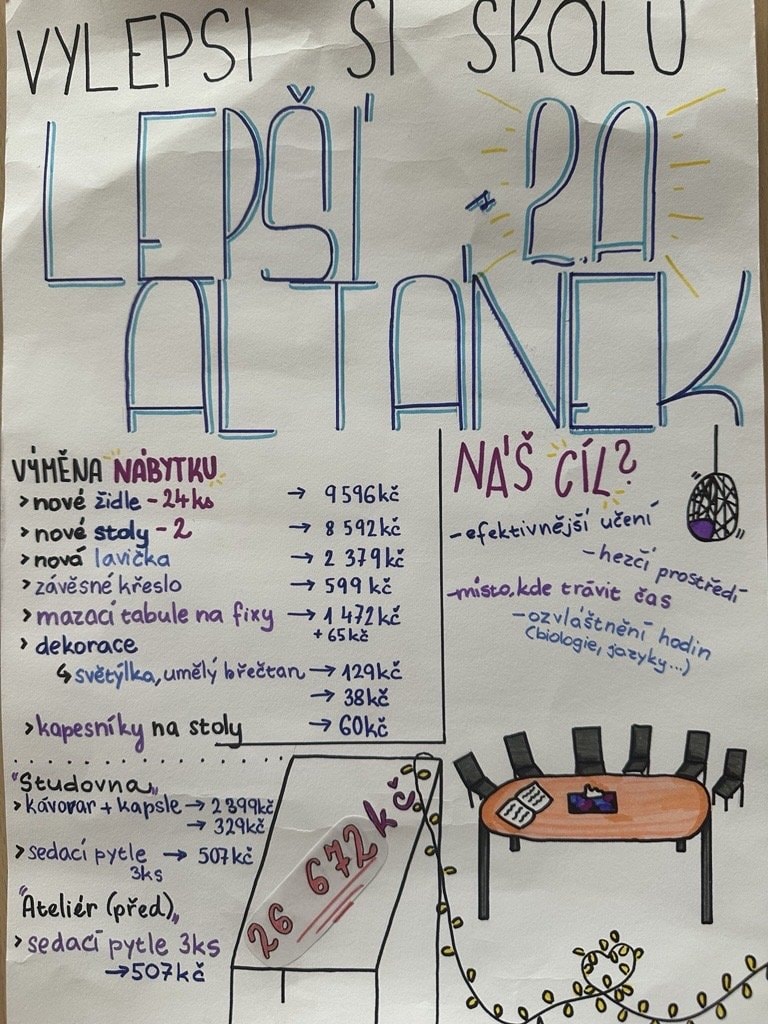 VYLEPSI SI ŠKOLU
LEPŠÍ 2.A
ALTÁNEK
VÝMĚNA NÁBYTKU
> nové židle - 24ks → 9 596kč
> nové stoly - 2 → 8 592kč
> nová lavička → 2 379kč
> závěsné křeslo → 599 kč
> mazací tabule na fixy → 1 472kč
+ 65kč
> dekorace
↳ světýlka, umělý břečtan → 129kč
→ 38kč
> kapesníky na stoly → 60kč
NÁŠ CÍL?
- efektivnější učení
- hezčí prostředí
- místo, kde trávit čas
- ozvláštnění hodin
(biologie, jazyky...)
"Studovna"
> kávovar + kapsle → 2 399kč
→ 329kč
> sedací pytle → 507kč
3ks
"Ateliér (před)"
> sedací pytle 3ks
→ 507kč
26 672 kč